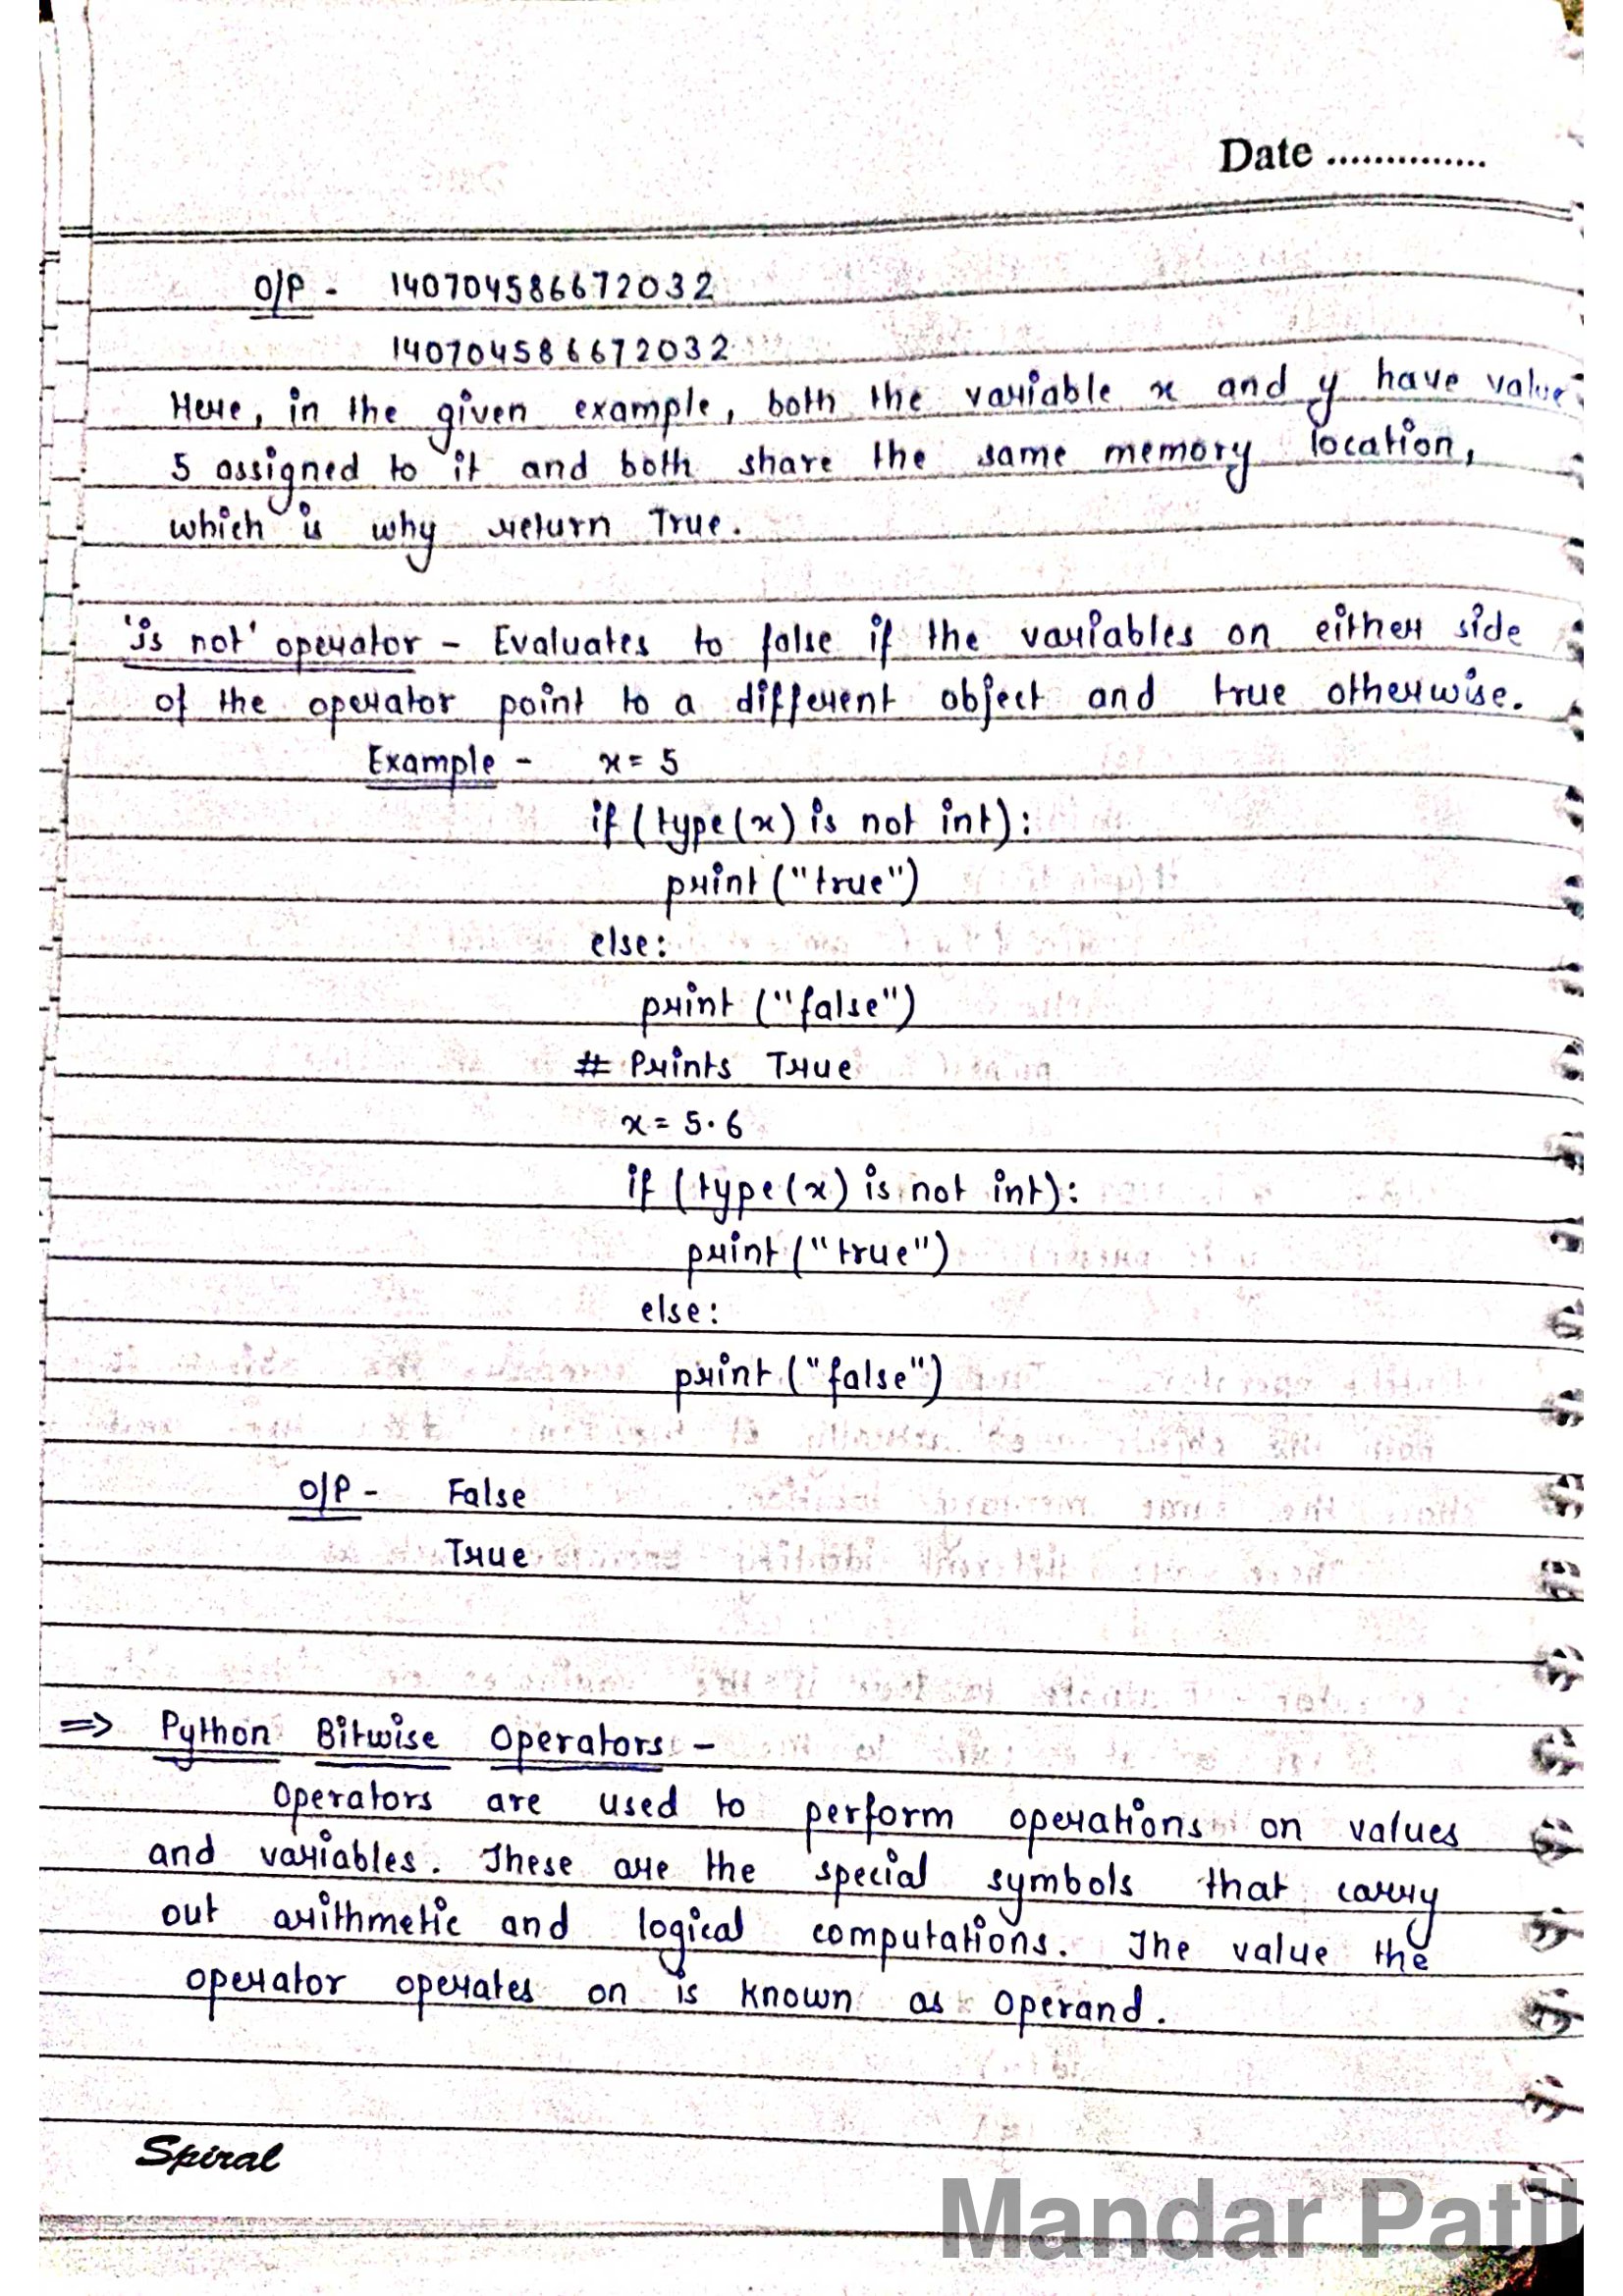 Date ..............
O/P - 140704586672032
140704586672032
Here, in the given example, both the variable x and y have value
5 assigned to it and both share the same memory location,
which is why return True.
'is not' operator - Evaluates to false if the variables on either side
of the operator point to a different object and true otherwise.
Example - x = 5
if (type(x) is not int):
print ("true")
else:
print ("false")
# Prints True
x = 5.6
if (type(x) is not int):
print ("true")
else:
print ("false")
O/P - False
True
=> Python Bitwise Operators -
Operators are used to perform operations on values
and variables. These are the special symbols that carry
out arithmetic and logical computations. The value the
operator operates on is known as Operand.
Spiral
Mandar Patil